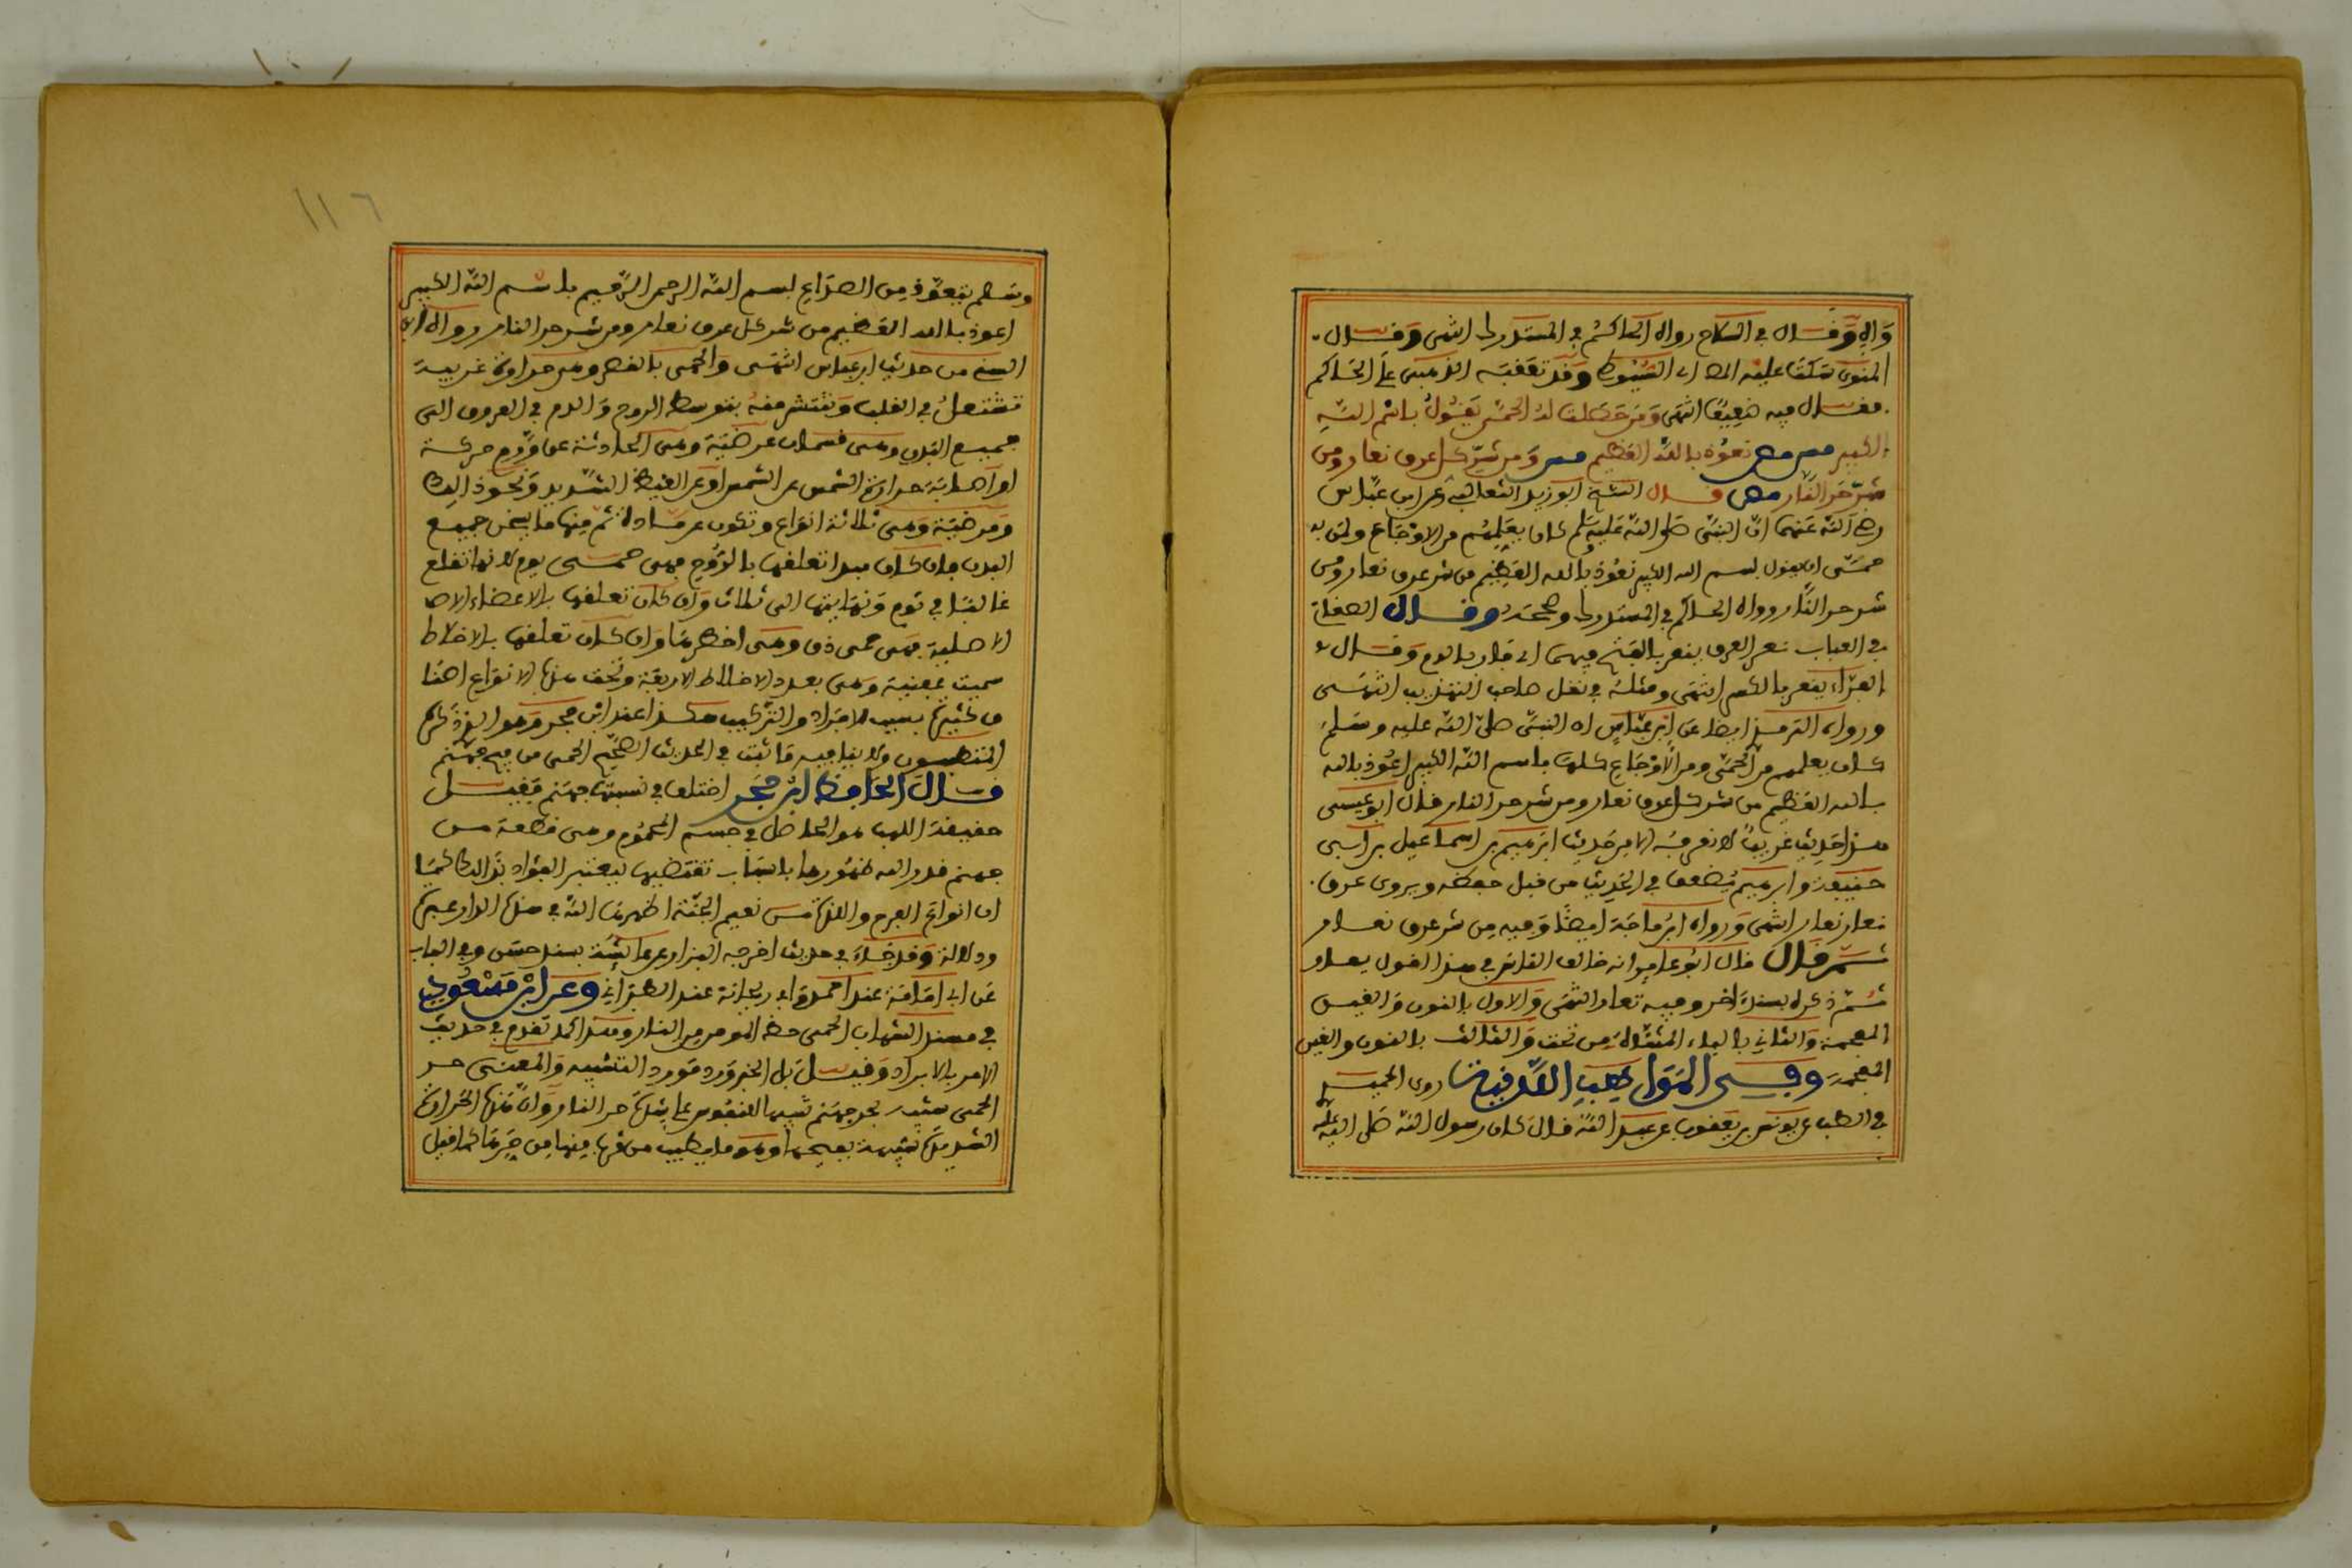 وَاله وَقَال في السلاح رواه الحاكم في المستدرك انتهى وَقال
المنوي سكت عليه المص اي السيوطي وَقد تعقبه الذهبي على الحاكم
فقال فيه ضعيف انتهى وَمن حصلت له الحمى يَقولُ باسْم اللّه
الكبير مص مص نعوُذ باللّه العَظيم مص وَمن شرّ كل عرق نعار ومن
شرّ حَر النَّار مص قال الشيخ ابو زيد الثعالبي وعن ابن عبّاس
رضي اللّه عَنهما انّ النبيّ صَلى اللّه عَليه وسَلم كان يعَلمهُم من الاوْجَاع ومن
حمىّ ان يقول بسم الله الكبير نعوُذ بالله العَظِيم من شر عرق نعار ومن
شر حر النَّار رواه الحاكم في المستدرك وصححَه وقال الصغاني
في العباب نعر العرق ينعر بالفَتح فيهما اي فار بالدم وَقال
الفرّاء ينعر بالكسر انتهَى ومثلهُ في نقل صاحب التهذيب انتهَى
ورواه الترمذي ايضا عَن ابن عبّاسٍ ان النبيّ صلى اللّه عليه وسَلم
كان يعلمهم من الحمىّ ومن الاَوْجَاعِ كلهَا باسم اللّه الكبير اعُوذ بالله
بالله العَظيم من شر كل عرق نعار ومن شر حر النار قال ابو عيسى
هذا حَديث غريبٌ لا نعرفهُ الا من حَديث ابرَهيم بن اسماعيل بن ابي
حبيبة وابرهيم يُضعف في الحَديث من قبل حفظه ويروى عرق
نعار نعار انتهى وَرواه ابن ماجَة ايضًا وَفيه مِن شر عرق نعار
ثم قال قال ابُو عَامر انه خالف القاس في هذا القول يعار
ثمّ ذكره بسندٍ اخر وفيه نعار انتهَى وَالاول بالنون وَالغين
المعجمة وَالثاني بالياء المثنّاة مِن تحت وَالثالث بالنون والعين
المعجمَة وَفي المَوَاهِب اللَّدنية روى الحميدي
في الطب عن يونس بن يَعقوب عن عبد اللّه قال كان رسول اللّه صَلى اللّه عليه
١١٦
وسَلم يتعوّذ مِن الصدَاعِ بسم اللّه الرحمن الرَّحيم باسم اللّه الكبير
اعوذ بالله العَظيم من شر كل عرق نعار ومن شر حر النار رواه ابن
السني من حديث ابن عبّاس انتهَى والحمى بالقصر وهي حرارة غريبة
تشتعلُ في القلب وَتنتشر منهُ بتوسط الروح وَالدم في العروق الى
جميع البدن وهي قسمان عرضيَة وهي الحادثة عن وَرم حركة
او اصابَة حرارة الشمس اَو القيظ الشديد وَنحوَ ذلك
وَمرضيَة وَهي ثلاثة انوَاع وتكون عن مَادة ثمّ مِنها ما يسخن جميع
البدن فان كان مبدا تعلقها بالرُّوح فهي حمى يوم لانها تقلع
غالبًا في يَوم وَنهايتها الى ثلاث وَان كان تعلقها بالاعضاء الا
الاصلية فهي حمى دق وهي اخطرهَا وَان كان تعلقها بالاخلاط
سميت عفنية وهي بعدد الاخلاط الاربَعة وتحت هذه الانوَاع اصنا
ف كثيرة بسبب الافرَاد والتركيب هكذا عند ابن حجر وَهو الذي ذكره
المتطببون ولا ينافيه مَا ثبت في الحديث الصحَيح الحمى من فيح جهنم
قالَ الحَافظ ابْن حجَر اختلف في نسبتها لجهنم فقيل
حقيقة اللهب هو الحاصل في جسم المحمُوم وهي قطعة من
جهنم قدر الله ظهُورها باسباب تقتضيها ليعتبر العبَاد بذَالك كما
ان انواع الفرح واللذة مِن نعيم الجنّة اظهرهَا اللّه في هذه الدار عبرة
ودلالة وَقد جَاءَ في حديث اخرجه البزار عن عَائشَة بسند حسَن وفي الباب
عَن ابي امَامَة عند احمد وَابي ريحانة عند الطبَراني وَعَن ابنْ مَسْعُودٍ
في مسند الشهاب الحمى حظ المومن من النار وهذا كما تقدم في حديث
الامر بالابراد وَقيل بل الخبر وَرد مَورد التشبيه وَالمعنى حر
الحمى شبيه بحر جهنم تنبيها للنفوس على شدّة حر النار وَانّ هَذه الحَرارة
الشديدة شبيهة بفيحها وهو ما يصيب من قرب مِنها مِن حَرهَا كما قيل